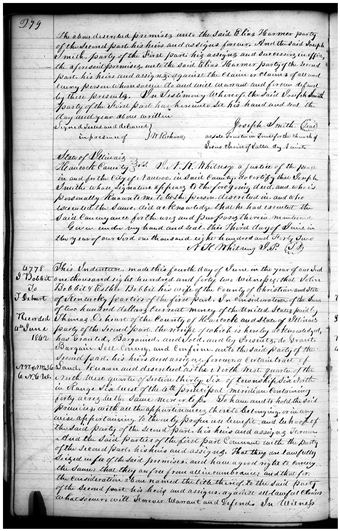 The above described premises unto the Said Elias Harmer party
of the second part his heirs and assigns forever. And the said Joseph
Smith party of the First part his assigns and successors in office
the aforesaid premises unto the said Elias Harmer party of the Second
part his heirs and assigns against the claim or claims of all and
every person whomsoever do and will warrant and forever defend
by these presents. In testimony whereof the said Joseph Smith
Party of the First part has hereunto set his hand and seal the
day and year above written
Signed Sealed and delivered
in presence of
W. Richards
Joseph Smith (Seal)
as sole Trustee in Trust for the Church of
Jesus Christ of Latter day Saints
State of Illinois
Hancock County
I N. K. Whitney a Justice of the peace
in and for the City of Nauvoo in said County do certify that Joseph
Smith whose signature appears to the foregoing deed and who is
personally known to me to be the person described in and who
executed the same did acknowledge that he executed the
Said Conveyance for the uses and purposes therein mentioned
Given under my hand and seal this Third day of June in
the year of our Lord one thousand eight hundred and forty two
N. K. Whitney J.P.
4778
Bobbit
To
T
Recorded
June
1842
This Indenture made this fourth day of June in the year of our Lord
one thousand eight hundred and forty two between
Bobbit & Esther Bobbit his wife of the County of Christian and State
of Kentucky parties of the first part. In consideration of the Sum
of two hundred dollars current money of the United States paid by
Thomas of the County of Hancock and State of Illinois
party of the Second part the receipt of which is hereby acknowledged
has Granted, Bargained and Sold and by presents do Grant
Bargain Sell Convey and Confirm unto the said party of the
Second part his heirs and assigns forever a Certain
Land Known and described as the North West quarter of the
North West quarter of Section thirty Six of township Six North
in Range West of the 4th principal Meridian Containing
forty acres be the same more or less To have and to hold the said
premises with all the appurtenances thereto belonging or in any
wise appertaining to the only proper use benefit and behoof of
the Said party of the Second part his heirs and assigns forever
And the Said parties of the first part Covenant with the party
of the Second part his heirs and assigns. That they are lawfully
Seized in fee of the said premises and have a good right to Convey
the Same that they are free from all incumbrances and that for
the consideration above named the title thereof to the said party
of the second part his heirs and assigns against all lawful Claims
whatsoever will forever Warrant and Defend In Witness